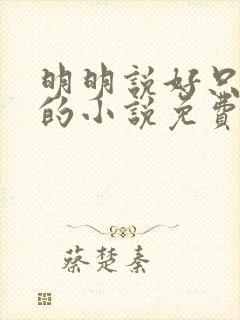 明明説好只
的小説免費
蔡楚秦